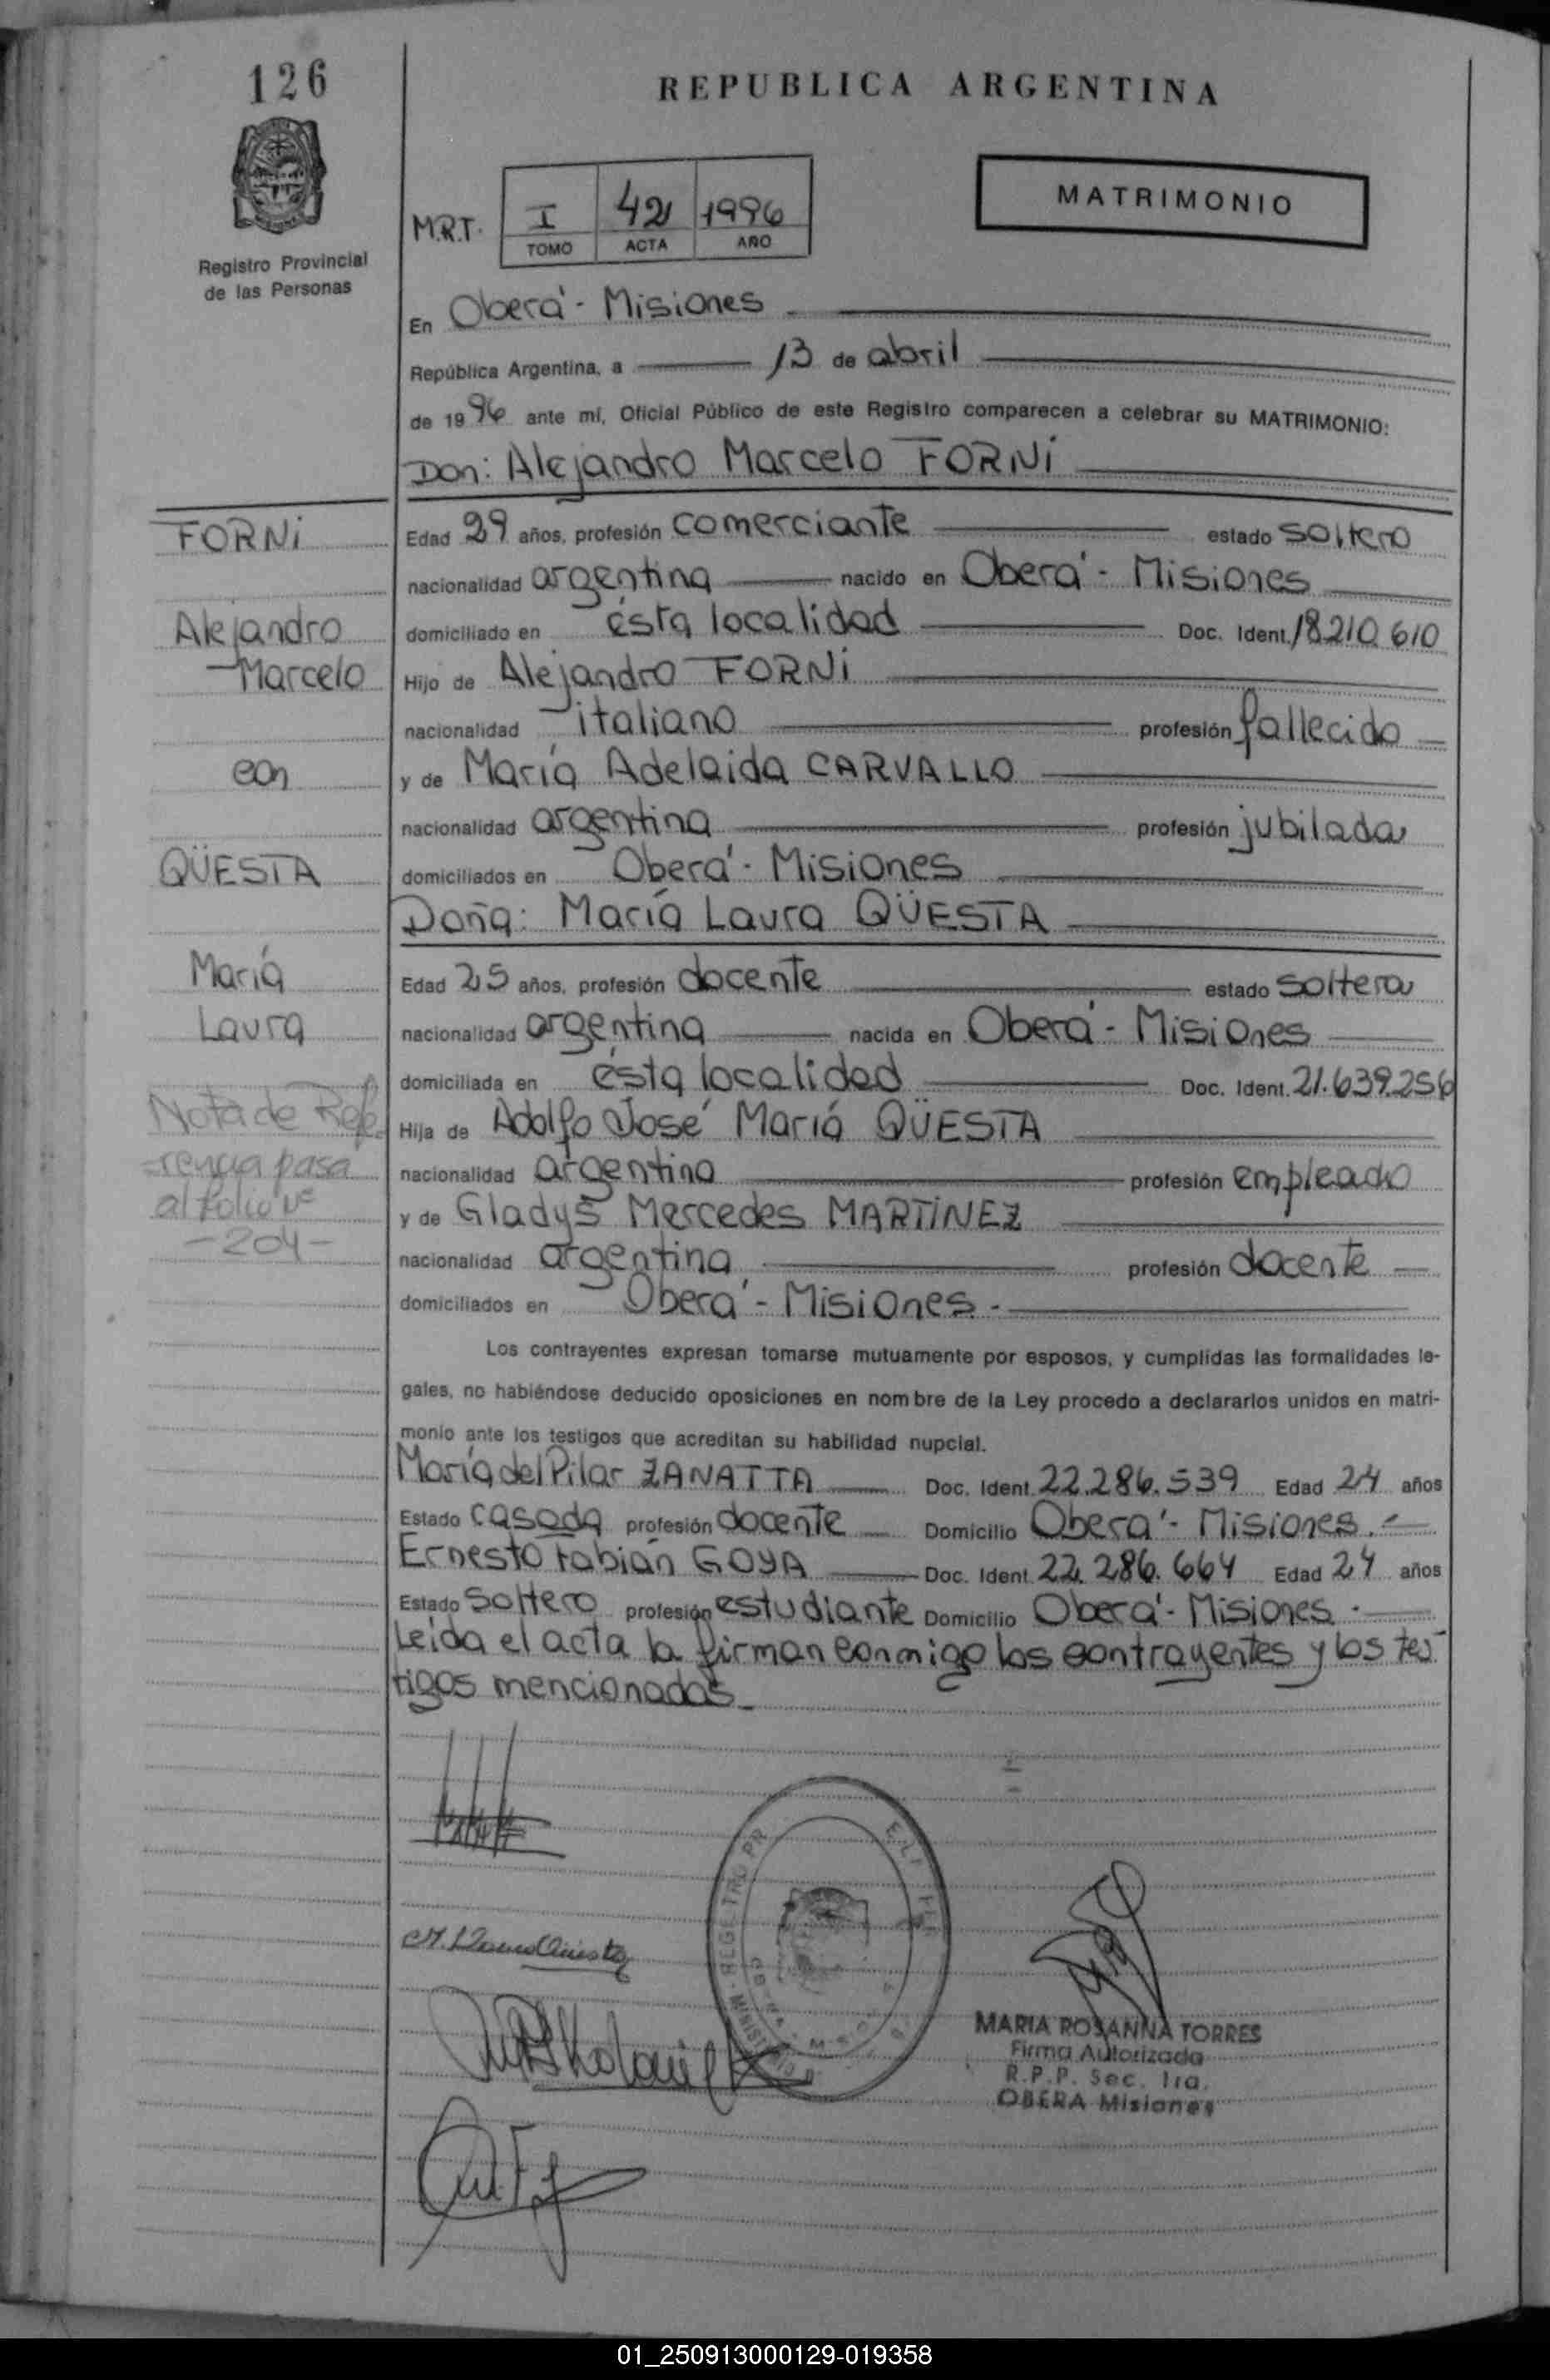 126
REPUBLICA ARGENTINA
Registro Provincial
de las Personas
M.R.T. I 42 1996
TOMO ACTA AÑO
MATRIMONIO
En Oberá - Misiones
República Argentina, a 13 de abril
de 1996 ante mí, Oficial Público de este Registro comparecen a celebrar su MATRIMONIO:
Don: Alejandro Marcelo FORNi
FORNi
Alejandro
Marcelo
con
QÜESTA
María
Laura
Nota de Refe
rencia pasa
al folio Nº
- 204 -
Edad 29 años, profesión comerciante estado soltero
nacionalidad argentina nacido en Oberá - Misiones
domiciliado en ésta localidad Doc. Ident. 18210.610
Hijo de Alejandro FORNi
nacionalidad italiano profesión fallecido
y de María Adelaida CARVALLO
nacionalidad argentina profesión jubilada
domiciliados en Oberá - Misiones
Doña: María Laura QÜESTA
Edad 25 años, profesión docente estado soltera
nacionalidad argentina nacida en Oberá - Misiones
domiciliada en ésta localidad Doc. Ident. 21.639.256
Hija de Adolfo José María QÜESTA
nacionalidad argentino profesión empleado
y de Gladys Mercedes MARTiNEZ
nacionalidad argentina profesión docente
domiciliados en Oberá - Misiones.-
Los contrayentes expresan tomarse mutuamente por esposos, y cumplidas las formalidades le-
gales, no habiéndose deducido oposiciones en nombre de la Ley procedo a declararlos unidos en matri-
monio ante los testigos que acreditan su habilidad nupcial.
María del Pilar ZANATTA Doc. Ident. 22.286.539 Edad 24 años
Estado casada profesión docente Domicilio Oberá - Misiones.-
Ernesto Fabián GOYA Doc. Ident. 22.286.664 Edad 24 años
Estado soltero profesión estudiante Domicilio Oberá - Misiones.-
Leída el acta la firman conmigo los contrayentes y los tes-
tigos mencionados
MARIA ROSANNA TORRES
Firma Autorizada
R.P.P. Sec. 1ra.
OBERA Misiones
01_250913000129-019358